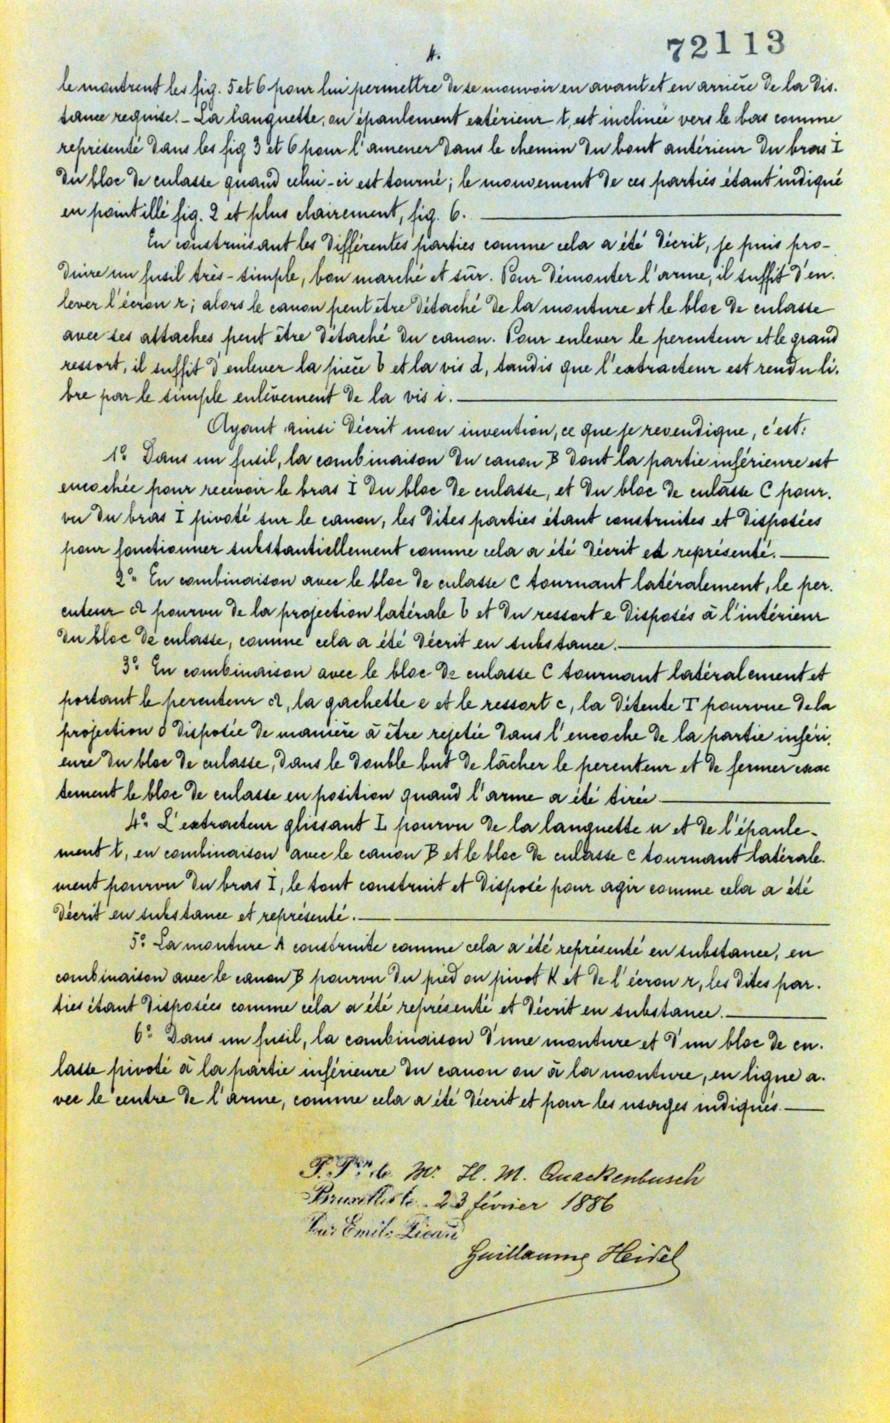 4.
72113
le montrent les fig. 5 et 6 pour lui permettre de se mouvoir en avant et en arrière de la dis-
tance requise. – La languette, ou épaulement extérieur t, est inclinée vers le bas comme
représenté dans les fig 3 et 6 pour l'amener dans le chemin du bout antérieur du bras I
du bloc de culasse quand celui-ci est tourné; le mouvement de ces parties étant indiqué
en pointillé fig. 2 et plus clairement, fig. 6.
En construisant les différentes parties comme cela a été décrit, je puis pro-
duire un fusil très-simple, bon marché et sûr. Pour démonter l'arme, il suffit d'en-
lever l'écrou r; alors le canon peut être détaché de la monture et le bloc de culasse
avec ses attaches peut être détaché du canon. Pour enlever le percuteur et le grand
ressort, il suffit d'enlever la pièce b et la vis d, tandis que l'extracteur est rendu li-
bre par le simple enlèvement de la vis i.
Ayant ainsi décrit mon invention, ce que je revendique, c'est:
1º Dans un fusil, la combinaison du canon B dont la partie inférieure est
encochée pour recevoir le bras I du bloc de culasse, et du bloc de culasse C pour-
vu du bras I pivoté sur le canon, les dites parties étant construites et disposées
pour fonctionner substantiellement comme cela a été décrit et représenté.
2º En combinaison avec le bloc de culasse C tournant latéralement, le per-
cuteur a pourvu de la projection latérale b et du ressort e disposés à l'intérieur
du bloc de culasse, comme cela a été décrit en substance.
3º En combinaison avec le bloc de culasse C tournant latéralement et
portant le percuteur a, la gachette e et le ressort c, la détente T pourvue de la
projection o disposée de manière à être rejetée dans l'encoche de la partie inféri-
eure du bloc de culasse, dans le double but de lâcher le percuteur et de fermer exac
tement le bloc de culasse en position quand l'arme a été tirée
4º L'extracteur glissant L pourvu de la languette u et de l'épaule-
ment t, en combinaison avec le canon B et le bloc de culasse C tournant latérale-
ment pourvu du bras I, le tout construit et disposé pour agir comme cela a été
décrit en substance et représenté.
5º La monture A construite comme cela a été représenté en substance, en
combinaison avec le canon B pourvu du pied ou pivot K et de l'écrou r, les dites par-
ties étant disposées comme cela a été représenté et décrit en substance.
6º Dans un fusil, la combinaison d'une monture et d'un bloc de cu-
lasse pivoté à la partie inférieure du canon ou à la monture, en ligne a-
vec le centre de l'arme, comme cela a été décrit et pour les usages indiqués.
P. Pon de Mr H. M. Quackenbusch
Bruxelles le 23 février 1886
Pour Emile Picard
Guillaume Heidel